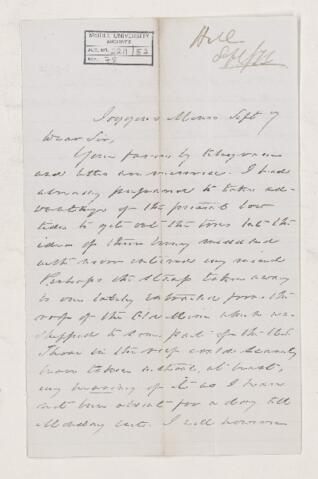 McGILL UNIVERSITY
ARCHIVES
ACC. NO. 2211/53
REF. 78
Hill
Sept/71
Joggins Mines Sept 7
Dear Sir,
Your favors by telegram
and letter are received. I had
already prepared to take ad-
vantage of the present low
tides to get out the trees but the
idea of them being meddled
with never entered my mind
Perhaps the stump taken away
is one lately extracted from the
roof of the Old Mine which was
shipped to some part of the U.S.
Those in the reef could scarcely
have been taken without, at least,
my hearing of it as I have
not been absent for a day till
Monday last. I will however